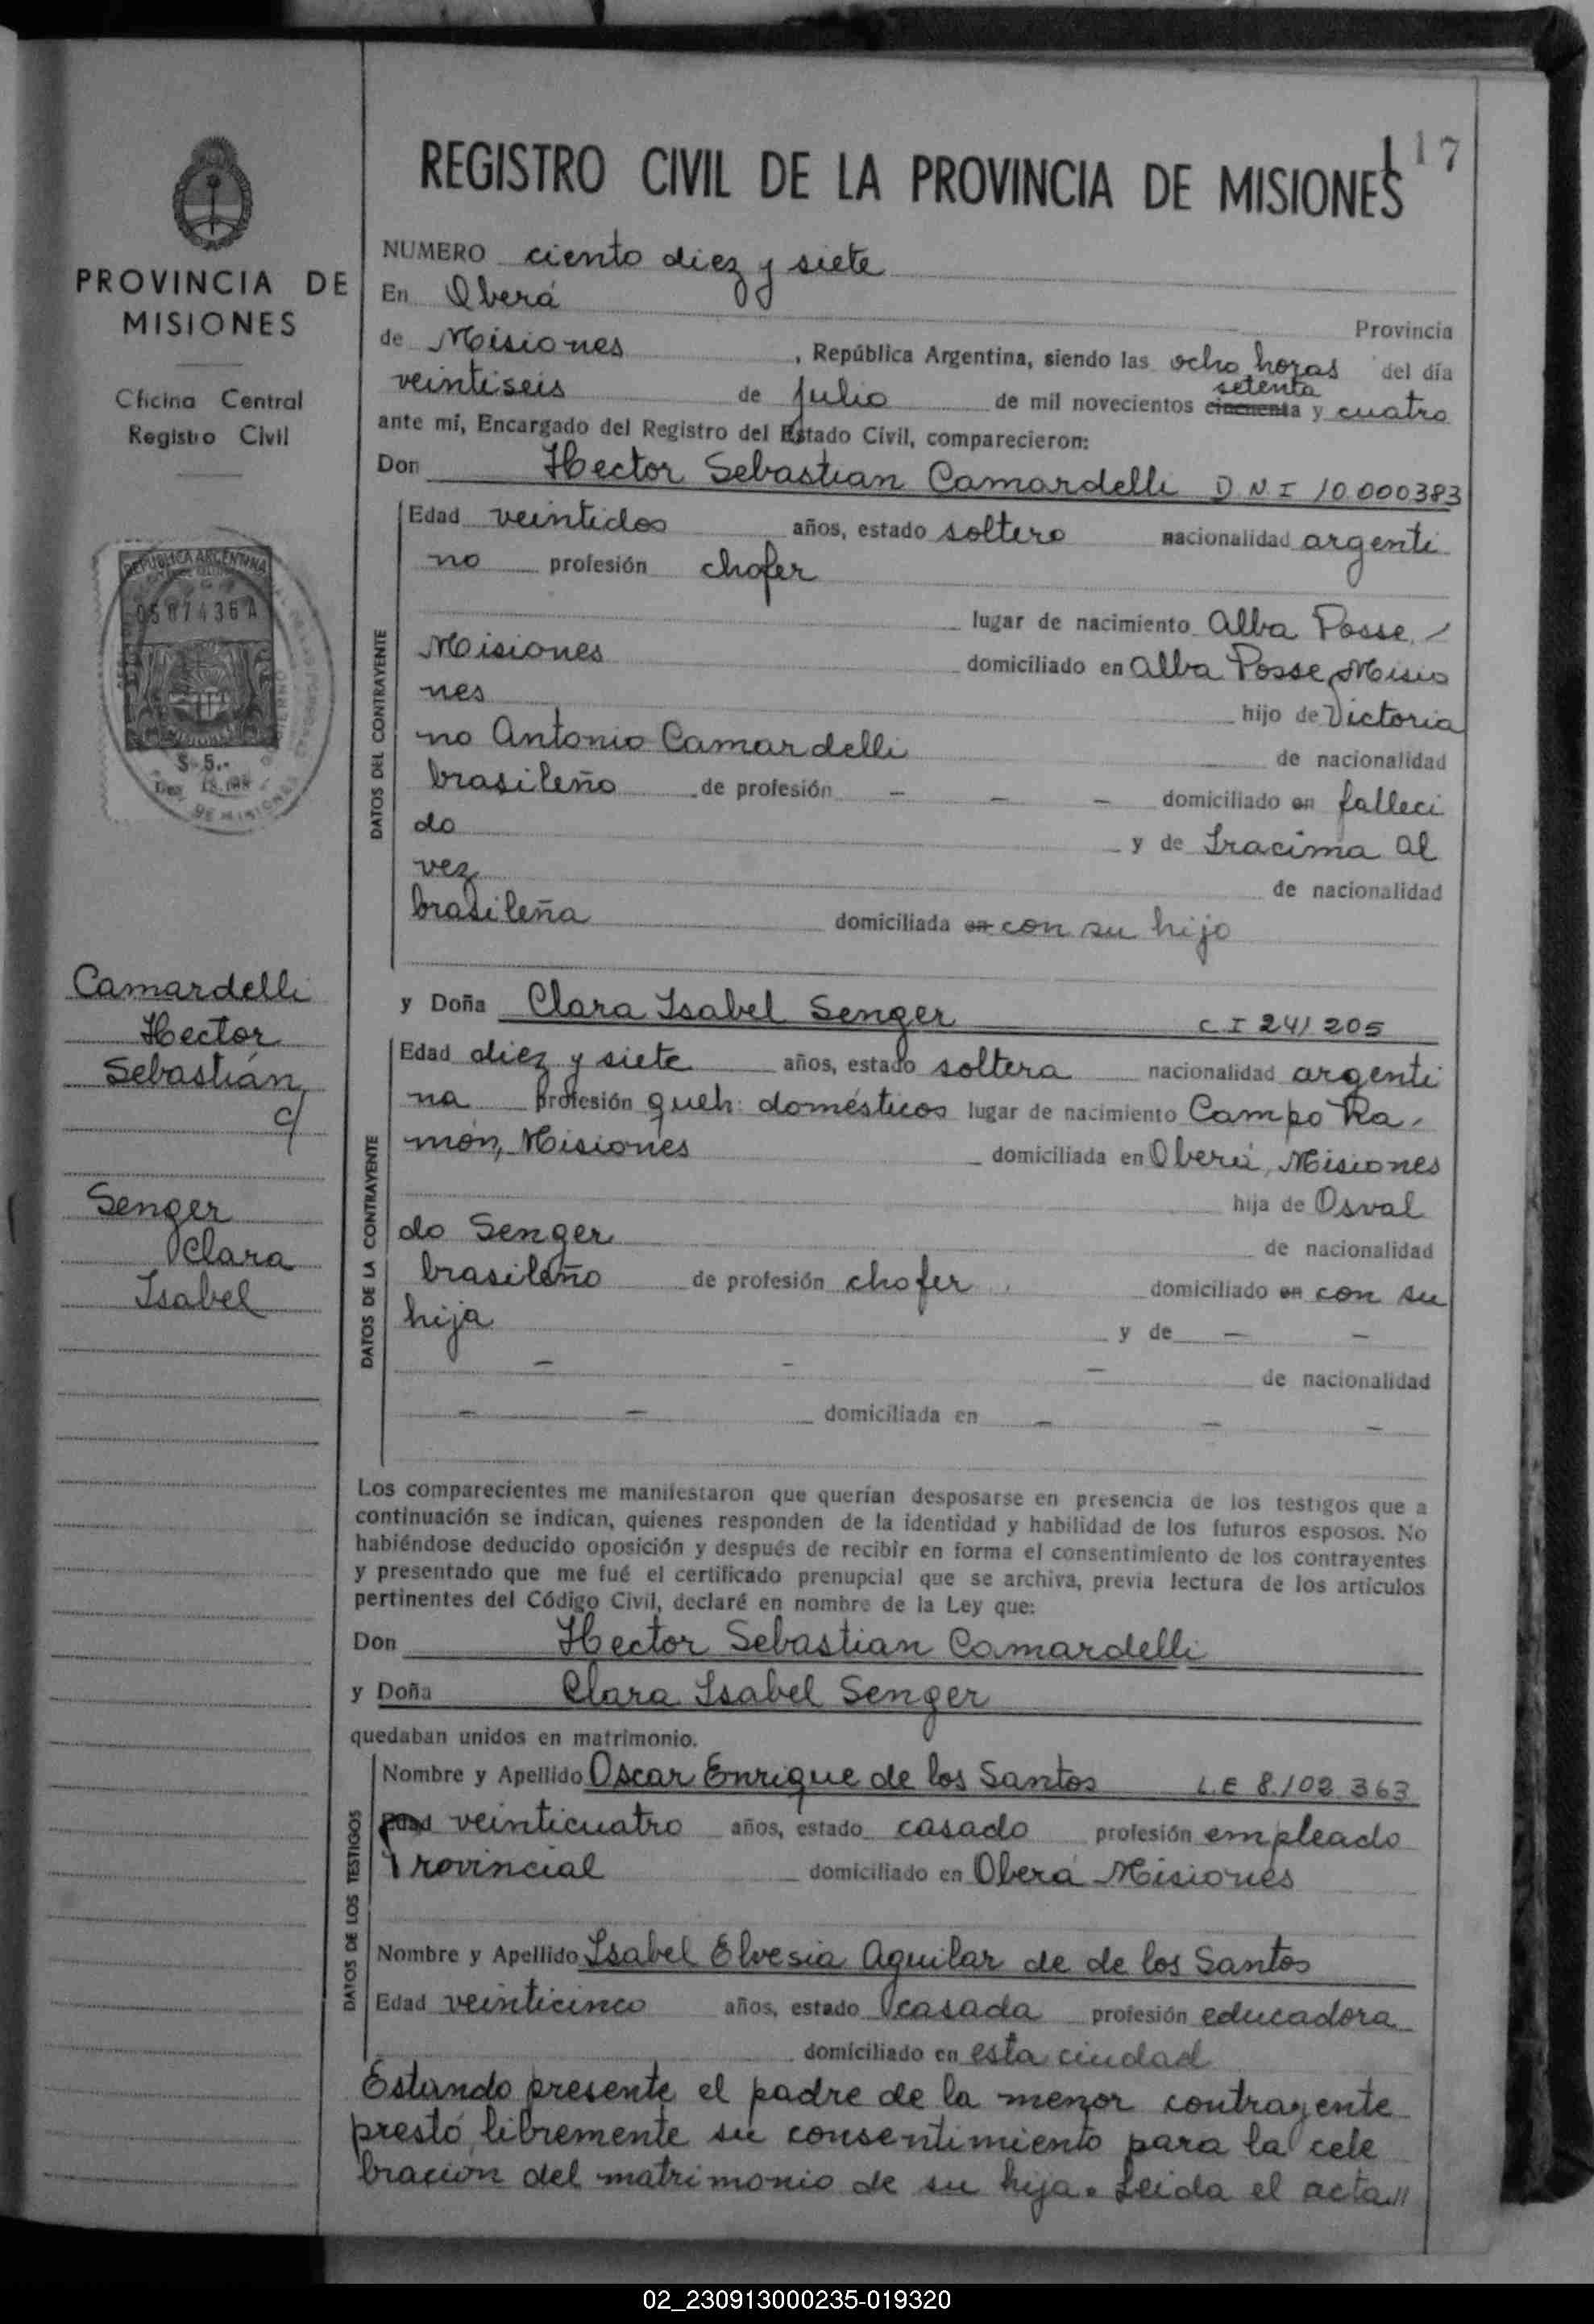 117
REGISTRO CIVIL DE LA PROVINCIA DE MISIONES
PROVINCIA DE
MISIONES
Oficina Central
Registro Civil
REPUBLICA ARGENTINA
0587436A
$ 5.-
Camardelli
Hector
Sebastián
c/
Senger
Clara
Isabel
NUMERO ciento diez y siete
En Oberá Provincia
de Misiones, República Argentina, siendo las ocho horas del día
veintiseis de julio de mil novecientos cincuenta setenta y cuatro
ante mí, Encargado del Registro del Estado Civil, comparecieron:
Don Hector Sebastian Camardelli D N I 10.000383
DATOS DEL CONTRAYENTE
Edad veintidos años, estado soltero nacionalidad argenti
no profesión chofer
lugar de nacimiento Alba Posse,
Misiones domiciliado en Alba Posse, Misio
nes hijo de Victoria
no Antonio Camardelli de nacionalidad
brasileño de profesión - - - domiciliado en falleci
do y de Iracima Al
vez de nacionalidad
brasileña domiciliada en con su hijo
y Doña Clara Isabel Senger C I 241205
DATOS DE LA CONTRAYENTE
Edad diez y siete años, estado soltera nacionalidad argenti
na profesión queh: domésticos lugar de nacimiento Campo Ra-
món, Misiones domiciliada en Oberá, Misiones
hija de Osval
do Senger de nacionalidad
brasileño de profesión chofer domiciliado en con su
hija y de - -
- - - de nacionalidad
- - domiciliada en - - -
Los comparecientes me manifestaron que querían desposarse en presencia de los testigos que a
continuación se indican, quienes responden de la identidad y habilidad de los futuros esposos. No
habiéndose deducido oposición y después de recibir en forma el consentimiento de los contrayentes
y presentado que me fué el certificado prenupcial que se archiva, previa lectura de los artículos
pertinentes del Código Civil, declaré en nombre de la Ley que:
Don Hector Sebastian Camardelli
y Doña Clara Isabel Senger
quedaban unidos en matrimonio.
DATOS DE LOS TESTIGOS
Nombre y Apellido Oscar Enrique de los Santos L.E 8.102.363
Edad veinticuatro años, estado casado profesión empleado
Provincial domiciliado en Oberá Misiones
Nombre y Apellido Isabel Elvesia Aguilar de de los Santos
Edad veinticinco años, estado casada profesión educadora
domiciliado en esta ciudad
Estando presente el padre de la menor contrayente
prestó libremente su consentimiento para la cele
bracion del matrimonio de su hija. Leida el acta//
02_230913000235-019320